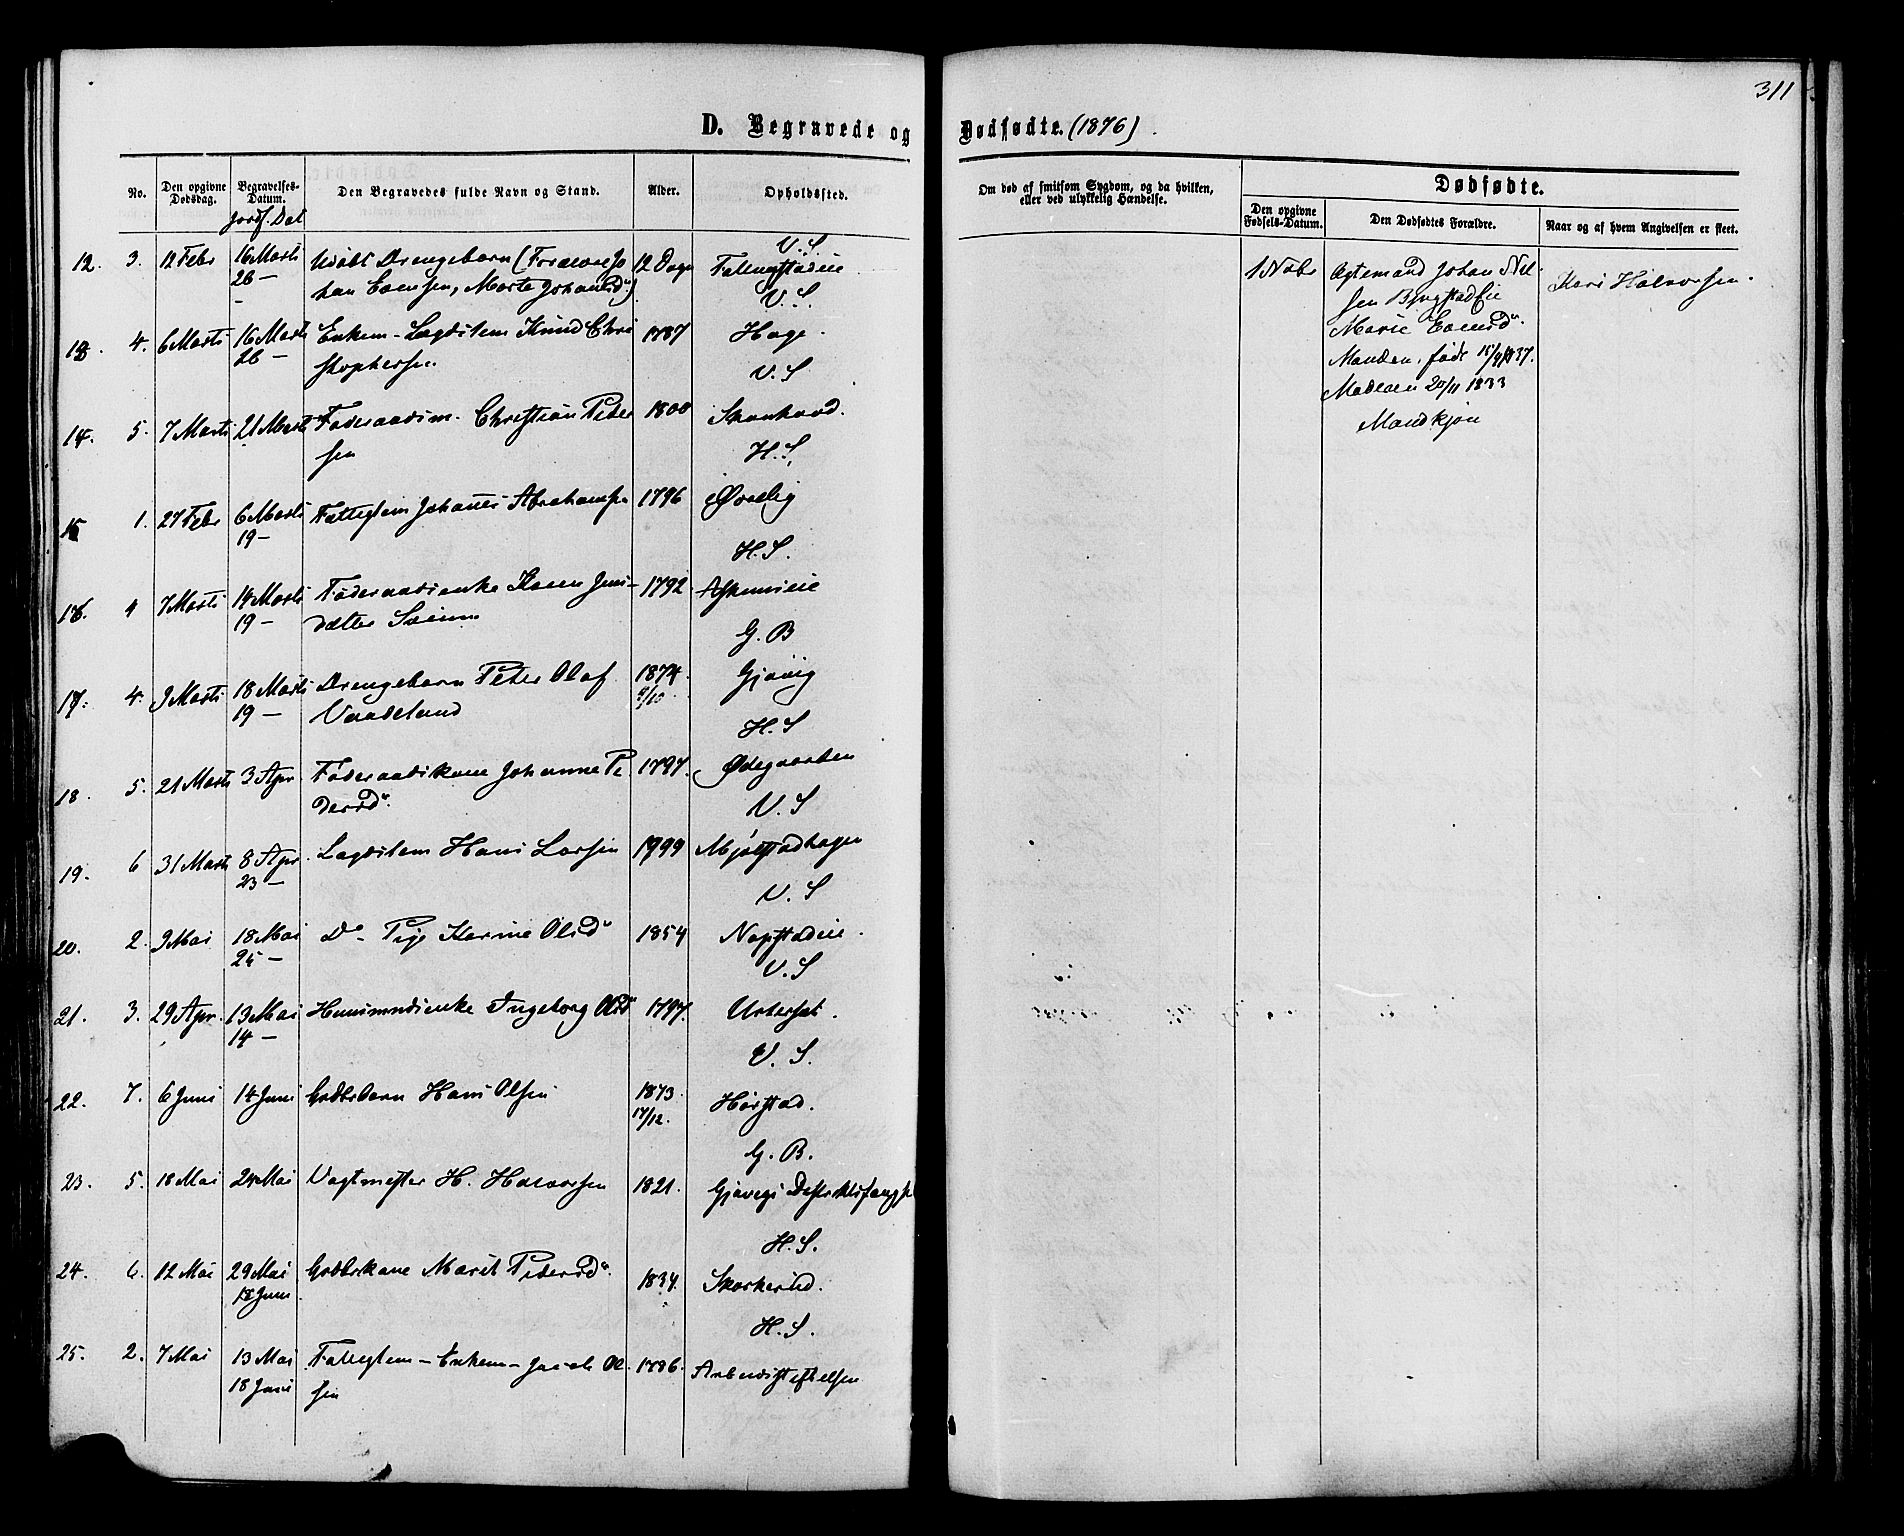 311
D. Begravede og Dødfødte. (1876)
No.
Den opgivne Dødsdag.
Begravelses-Datum.
Jordf. Dat
Den Begravedes fulde Navn og Stand.
Alder.
Opholdssted.
Om død af smitsom Sygdom, og da hvilken,
eller ved ulykkelig Hændelse.
Dødfødte.
Den opgivne Fødsels-Datum.
Den Dødfødtes Forældre.
Naar og af hvem Angivelsen er skeet.
V. S
12. 3. 12 Febr 16 Marts Drengebarn (Forældre Jo 12 Dage
26 — han Evensen, Marte Johansd.)
V. S.
13. 4. 6 Marts 16 Marts Enkem – Lægdslem Knud Chri 1787 Hage
26 — stophersen
V. S
14. 5. 7 Marts 21 Marts Føderaadsm. Christian Peder 1800
sen
H. S.
15 1. 27 Febr 6 Marts Fattiglem Johannes Abrahams 1796
19 —
H. S.
16. 4 7 Marts 14 Marts Føderaadsenke Karen Jens- 1792
19 — datter
G. B
17. 4. 9 Marts 18 Marts Drengebarn Peter Olaf 1874. Gjøvig
19 — 9/10.
H. S
18. 5. 21 Marts 3 Apr Føderaadskone Johanne Pe 1797. Ødegaarden
dersd.
V. S
19. 6 31 Marts 8 Apr. Lægdslem Hans Larsen 1799
23 —
V. S
20. 2. 9 Mai 18 Mai Do – Pige Karine Olsd 1854
25 —
V. S
21. 3. 29 Apr. 13 Mai Huusmandsenke Ingeborg Olsd 1797.
14 —
V. S.
22. 7. 6 Juni 14 Juni Gdbrbarn Hans Olsen 1873.
17/12.
G. B.
23. 5. 18 Mai 24 Mai Vagtmester H. Halvorsen 1821. Gjøvigs
H. S.
24. 6. 12 Mai 29 Mai Gdbrkone Marit Pedersd. 1834.
18 Juni
H. S.
25. 2. 7 Mai 13 Mai Fattiglem – Enkem – Jacob Ol 1786.
18 Juni sen
1 Novbr
Ægtemand Johan Nil-
sen
Marie Evensd.
Manden, født 15/9 1837.
Moderen 20/11 1833
Mandkjøn
Kari Halvorsen.